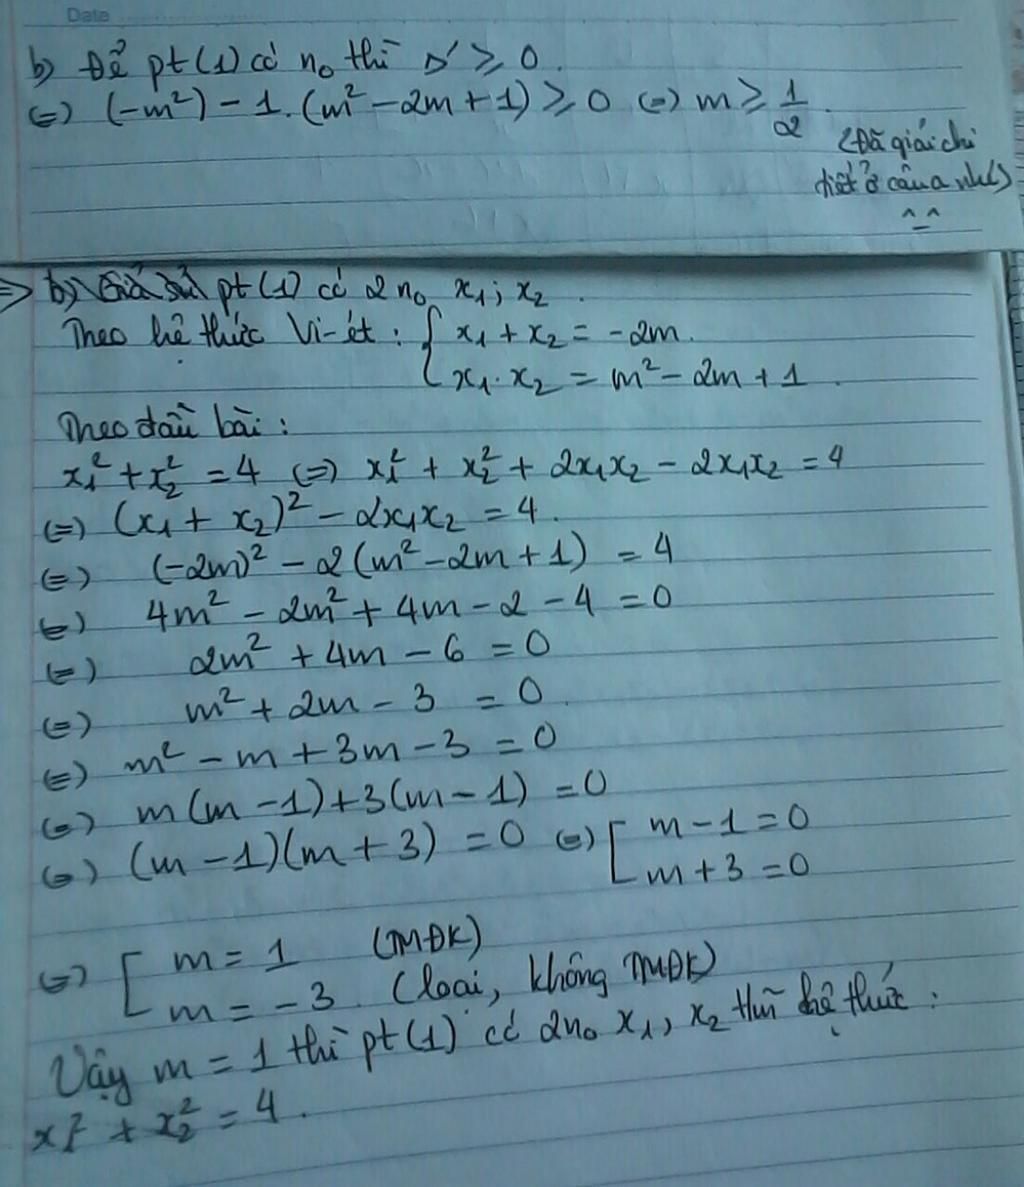 Date
b) Để pt (1) có n₀ thì Δ' ≥ 0.
(=) (-m²) - 1.(m² - 2m + 1) ≥ 0 (=) m ≥ 1/2.
(Đã giải chi
tiết ở câu a nhé)
^_^
=> b) Giả sử pt (1) có 2 n₀ x₁; x₂.
Theo hệ thức Vi-ét: { x₁ + x₂ = -2m.
x₁. x₂ = m² - 2m + 1.
Theo đầu bài:
x₁² + x₂² = 4 (=) x₁² + x₂² + 2x₁x₂ - 2x₁x₂ = 4
(=) (x₁ + x₂)² - 2x₁x₂ = 4.
(=) (-2m)² - 2(m² - 2m + 1) = 4
(=) 4m² - 2m² + 4m - 2 - 4 = 0
(=) 2m² + 4m - 6 = 0
(=) m² + 2m - 3 = 0.
(=) m² - m + 3m - 3 = 0
(=) m(m - 1) + 3(m - 1) = 0
(=) (m - 1)(m + 3) = 0 (=) [ m - 1 = 0
m + 3 = 0
(=) [ m = 1 (TMĐK)
m = -3. (loại, không TMĐK)
Vậy m = 1 thì pt (1) có 2 n₀ x₁, x₂ t/m hệ thức:
x₁² + x₂² = 4.